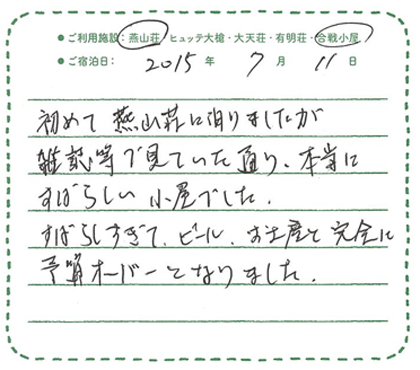 ●ご利用施設：燕山荘・ヒュッテ大槍・大天荘・有明荘・合戦小屋
●ご宿泊日： 2015 年 7 月 11 日
初めて 燕山荘に泊りましたが
雑誌等で見ていた通り、本当に
すばらしい小屋でした。
すばらしすぎて、ビール、お土産と完全に
予算オーバーとなりました。